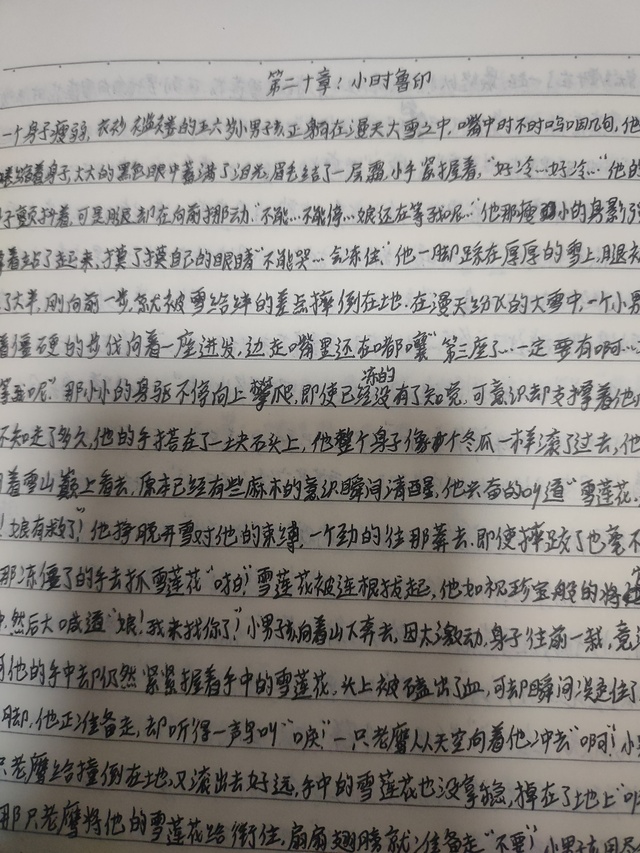 第二十章：小时鲁印
一个身子瘦弱，衣衫褴褛的五六岁小男孩，正匍匐在漫天大雪之中，嘴中时不时呜咽几句，他
缩着身子，大大的黑色眼中蓄满了泪光，眉毛结了一层霜，小手紧握着，"好冷…好冷…"他的
子颤抖着，可是腿却在向前挪动"不能…不能停…娘还在等我呢…"他那瘦小的身影
着站了起来，摸了摸自己的眼睛"不能哭…会冻住"他一脚踩在厚厚的雪上，腿被
了大半，刚向前一步，就被雪给绊的差点摔倒在地。在漫天纷飞的大雪中，一个小男
着僵硬的步伐向着一座进发，边走嘴里还在嘟囔"第三座了…一定要有啊…
等我呢"那小小的身躯不停向上攀爬，即使已经冻的没有了知觉，可意识却支撑着他
不知走了多久，他的手搭在了一块石头上，他整个身子像个冬瓜一样滚了过去，他
着雪山巅上看去，原本已经有些麻木的意识瞬间清醒，他兴奋的叫道"雪莲花
！娘有救了！"他挣脱开雪对他的束缚，一个劲的往那奔去，即使摔跤了也毫不
那冻僵了的手去抓雪莲花"啪！"雪莲花被连根拔起，他如视珍宝般的将
，然后大喊道"娘！我来找你了！"小男孩向着山下奔去，因太激动，身子往前一栽，竟
可他的手中却仍然紧紧握着手中的雪莲花，头上被磕出了血，可却瞬间凝住了
脚，他正准备走，却听得一声鸟叫"唳！"一只老鹰从天空向着他冲去"啊！"小
只老鹰给撞倒在地，又滚出去好远，手中的雪莲花也没拿稳，掉在了地上"
那只老鹰将他的雪莲花给衔住，扇扇翅膀就准备走"不要！"小男孩用尽